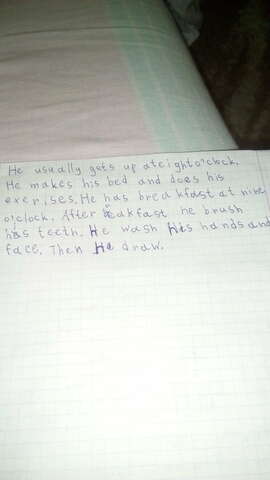 He usually gets up ateighto'clock.
He makes his bed and does his
exercises. He has breakfast at nine
o'clock. After beakfast he brush
his teeth. He wash his hands and
face. Then He draw.